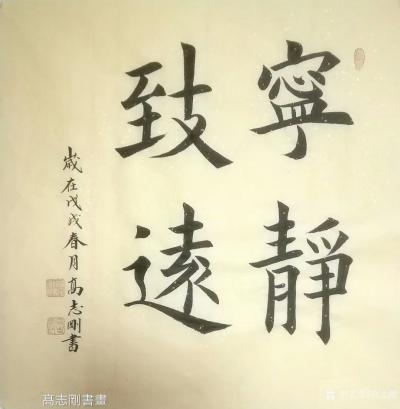 寧靜
致遠
歲在戊戌春月高志剛書
高志剛書畫